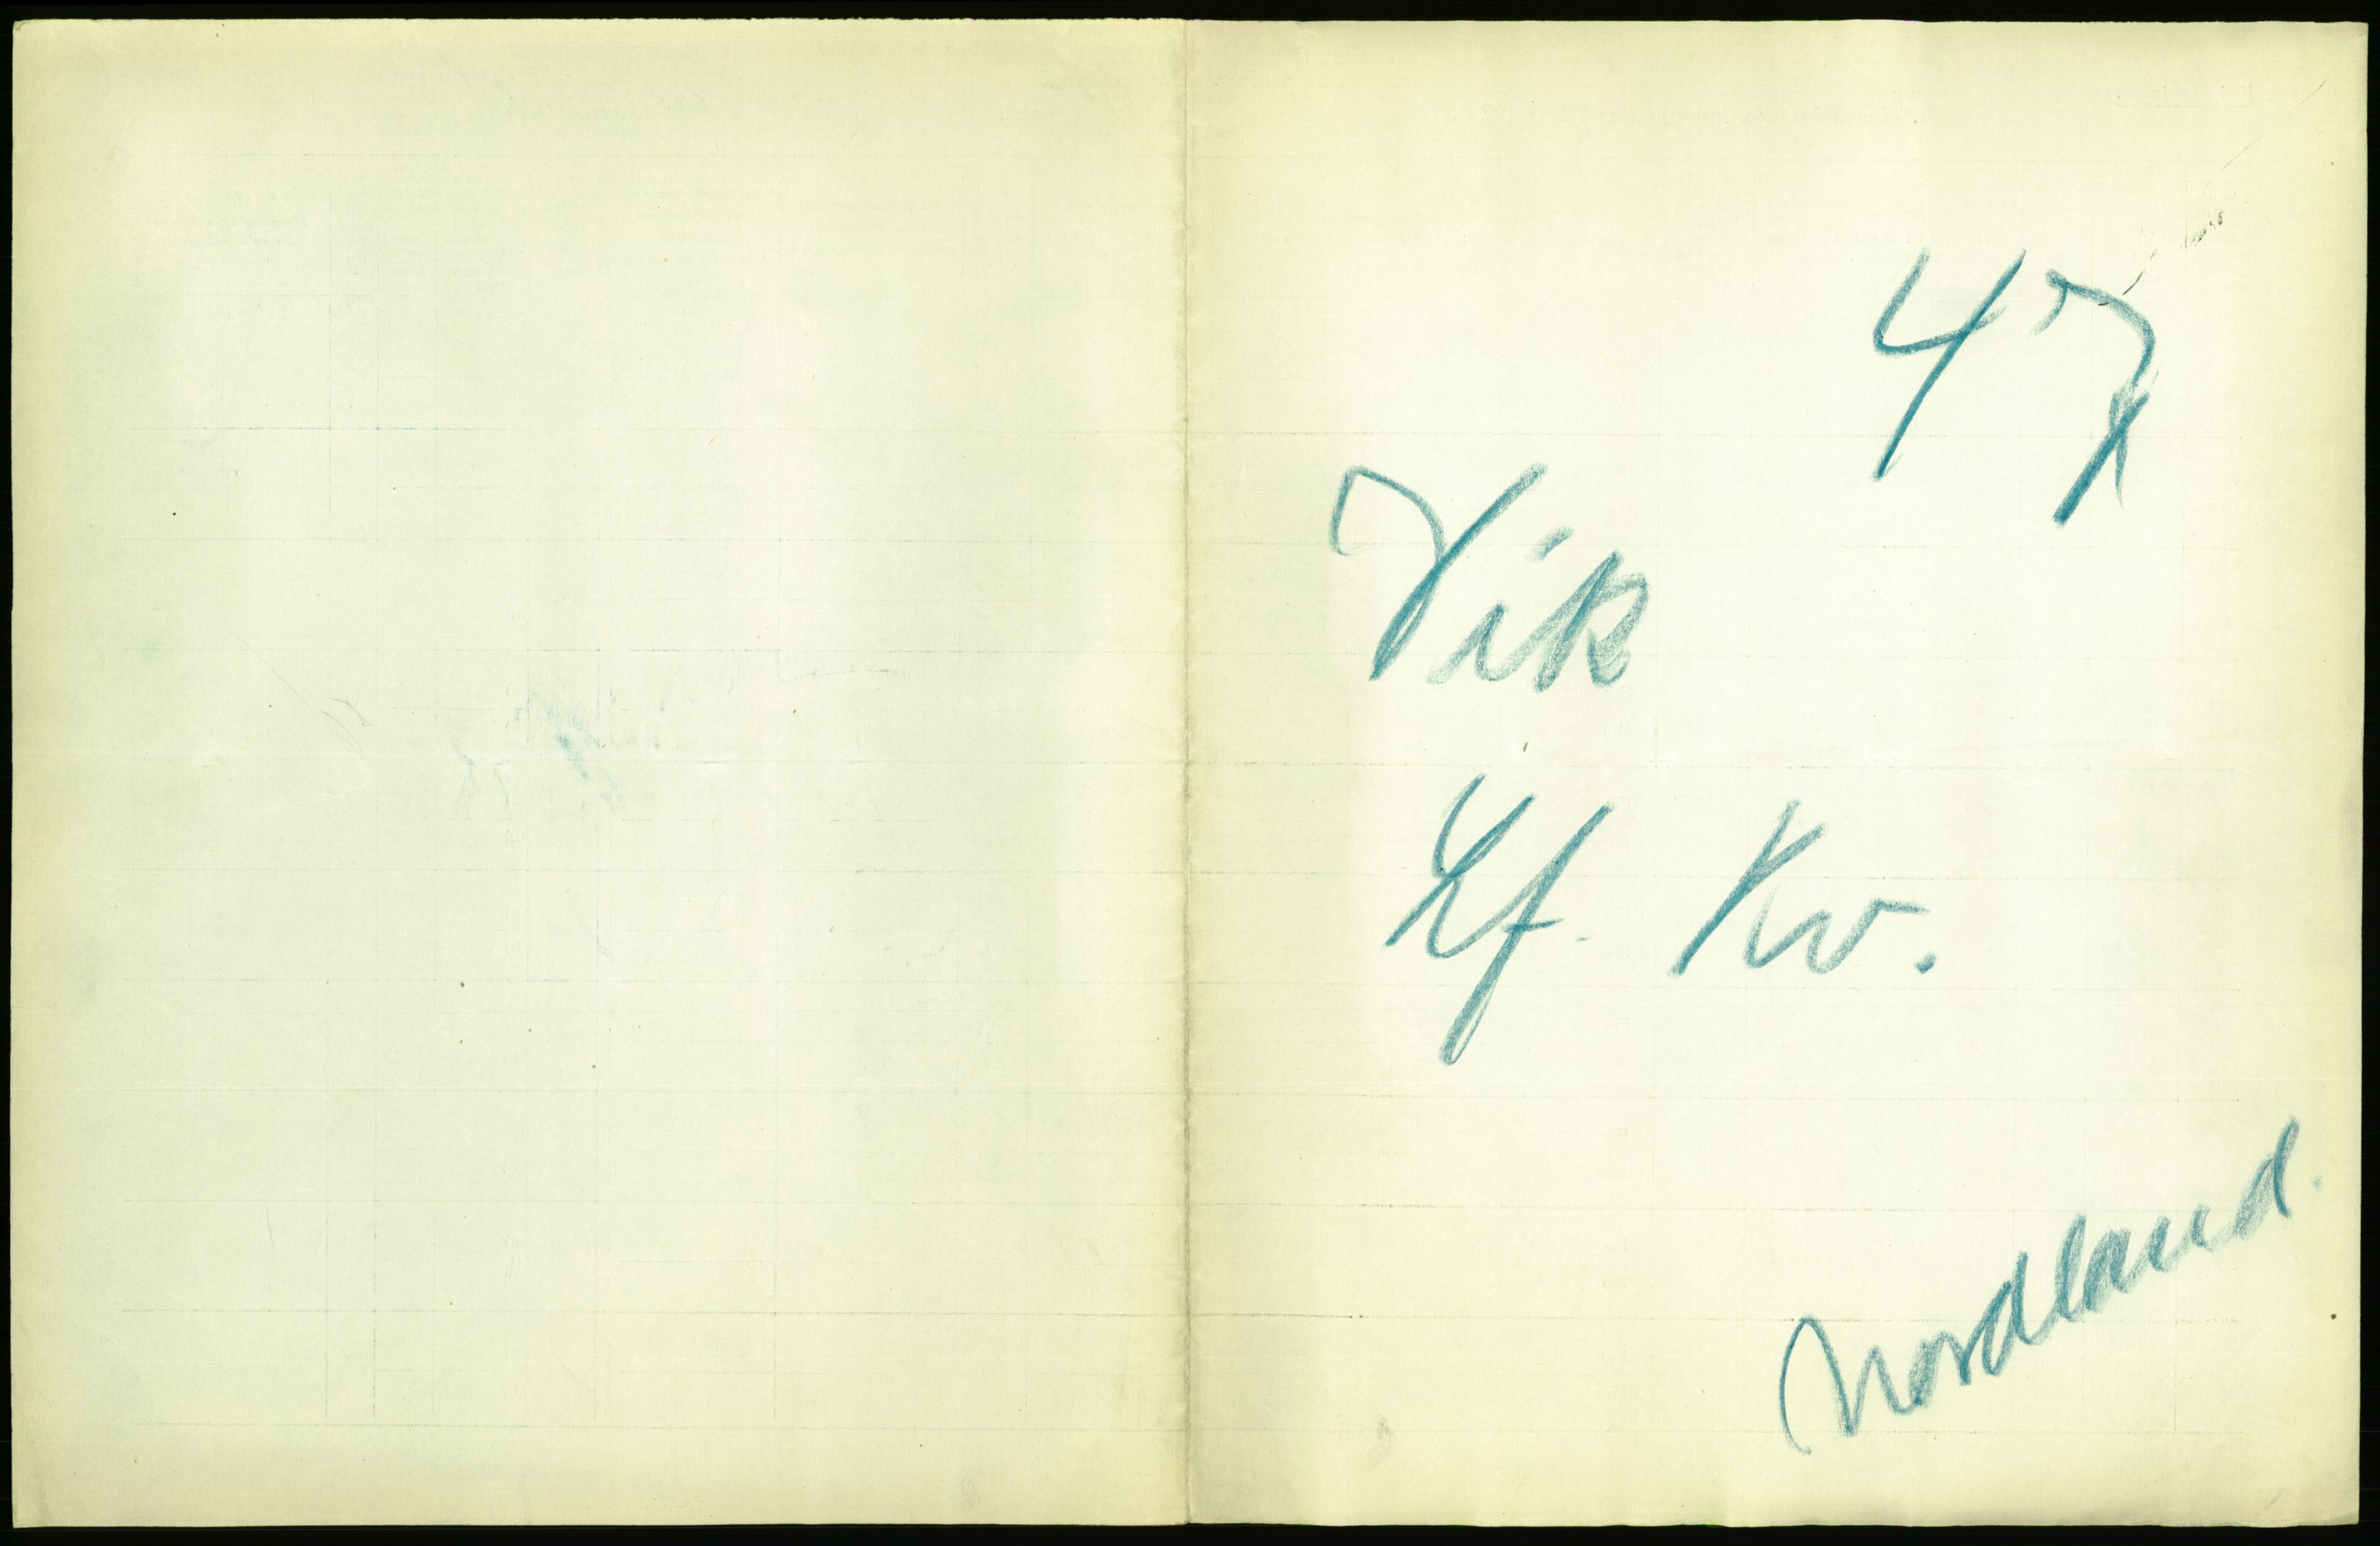 47
Vik
Lf. Kv.
Nordland.